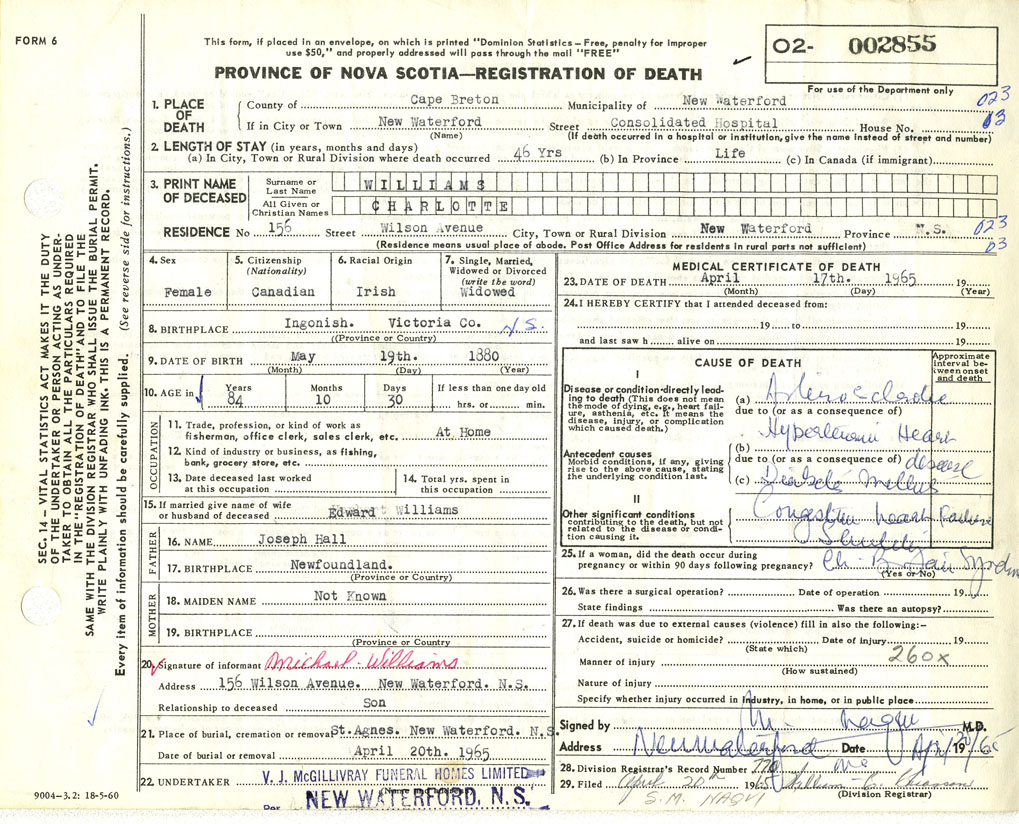 FORM 6
This form, if placed in an envelope, on which is printed "Dominion Statistics – Free, penalty for improper
use $50," and properly addressed will pass through the mail "FREE"
O2- 002855
PROVINCE OF NOVA SCOTIA—REGISTRATION OF DEATH
For use of the Department only
1. PLACE OF DEATH
County of Cape Breton Municipality of New Waterford 023
If in City or Town New Waterford Street Consolidated Hospital House No. 03
(Name) (If death occurred in a hospital or institution, give the name instead of street and number)
2. LENGTH OF STAY (in years, months and days)
(a) In City, Town or Rural Division where death occurred 46 Yrs (b) In Province Life (c) In Canada (if immigrant)
3. PRINT NAME OF DECEASED
Surname or Last Name WILLIAMS
All Given or Christian Names CHARLOTTE
RESIDENCE No 156 Street Wilson Avenue City, Town or Rural Division New Waterford Province N.S. 023
(Residence means usual place of abode. Post Office Address for residents in rural parts not sufficient) 03
4. Sex
Female
5. Citizenship
(Nationality)
Canadian
6. Racial Origin
Irish
7. Single, Married,
Widowed or Divorced
(write the word)
Widowed
8. BIRTHPLACE Ingonish. Victoria Co. N.S.
((Province or Country)
9. DATE OF BIRTH May 19th. 1880
(Month) (Day) (Year)
10. AGE in
Years Months Days If less than one day old
84 10 30 hrs. or min.
OCCUPATION
11. Trade, profession, or kind of work as
fisherman, office clerk, sales clerk, etc. At Home
12. Kind of industry or business, as fishing,
bank, grocery store, etc.
13. Date deceased last worked
at this occupation
14. Total yrs. spent in
this occupation
15. If married give name of wife
or husband of deceased Edward Williams
FATHER
16. NAME Joseph Hall
17. BIRTHPLACE Newfoundland.
(Province or Country)
MOTHER
18. MAIDEN NAME Not Known
19. BIRTHPLACE
(Province or Country
20. Signature of informant Michael Williams
Address 156 Wilson Avenue. New Waterford. N.S.
Relationship to deceased Son
21. Place of burial, cremation or removal St. Agnes. New Waterford. N.S.
Date of burial or removal April 20th. 1965
22. UNDERTAKER V. J. McGILLIVRAY FUNERAL HOMES LIMITED
Per NEW WATERFORD, N.S.
9004-3.2: 18-5-60
MEDICAL CERTIFICATE OF DEATH
23. DATE OF DEATH April 17th. 1965
(Month) (Day) (Year)
24. I HEREBY CERTIFY that I attended deceased from:
19 to 19
and last saw h alive on 19
CAUSE OF DEATH
Approximate
interval be-
tween onset
and death
I
Disease or condition directly lead-
ing to death (This does not mean
the mode of dying, e.g., heart fail-
ure, asthenia, etc. It means the
disease, injury, or complication
which caused death.)
(a) Arteriosclerotic
due to (or as a consequence of)
Hypertensive Heart
Antecedent causes
Morbid conditions, if any, giving
rise to the above cause, stating
the underlying condition last.
(b)
due to (or as a consequence of) disease
(c) Diabetes Mellitus
II
Other significant conditions
contributing to the death, but not
related to the disease or condi-
tion causing it.
Congestive heart Failure
25. If a woman, did the death occur during
pregnancy or within 90 days following pregnancy?
(Yes or No)
26. Was there a surgical operation? Date of operation 19
State findings Was there an autopsy?
27. If death was due to external causes (violence) fill in also the following:-
Accident, suicide or homicide? Date of injury 19
(State which)
260x
Manner of injury
(How sustained)
Nature of injury
Specify whether injury occurred in Industry, in home, or in public place
Signed by M.D.
Address New Waterford Date Apr 20 1965
28. Division Registrar's Record Number 770
29. Filed April 20th 1965
(Division Registrar)
S.M. NAQVI
SEC. 14 – VITAL STATISTICS ACT MAKES IT THE DUTY
OF THE UNDERTAKER OR PERSON ACTING AS UNDER-
TAKER TO OBTAIN ALL THE PARTICULARS REQUIRED
IN THE "REGISTRATION OF DEATH" AND TO FILE THE
SAME WITH THE DIVISION REGISTRAR WHO SHALL ISSUE THE BURIAL PERMIT.
WRITE PLAINLY WITH UNFADING INK. THIS IS A PERMANENT RECORD.
Every item of information should be carefully supplied. (See reverse side for instructions.)